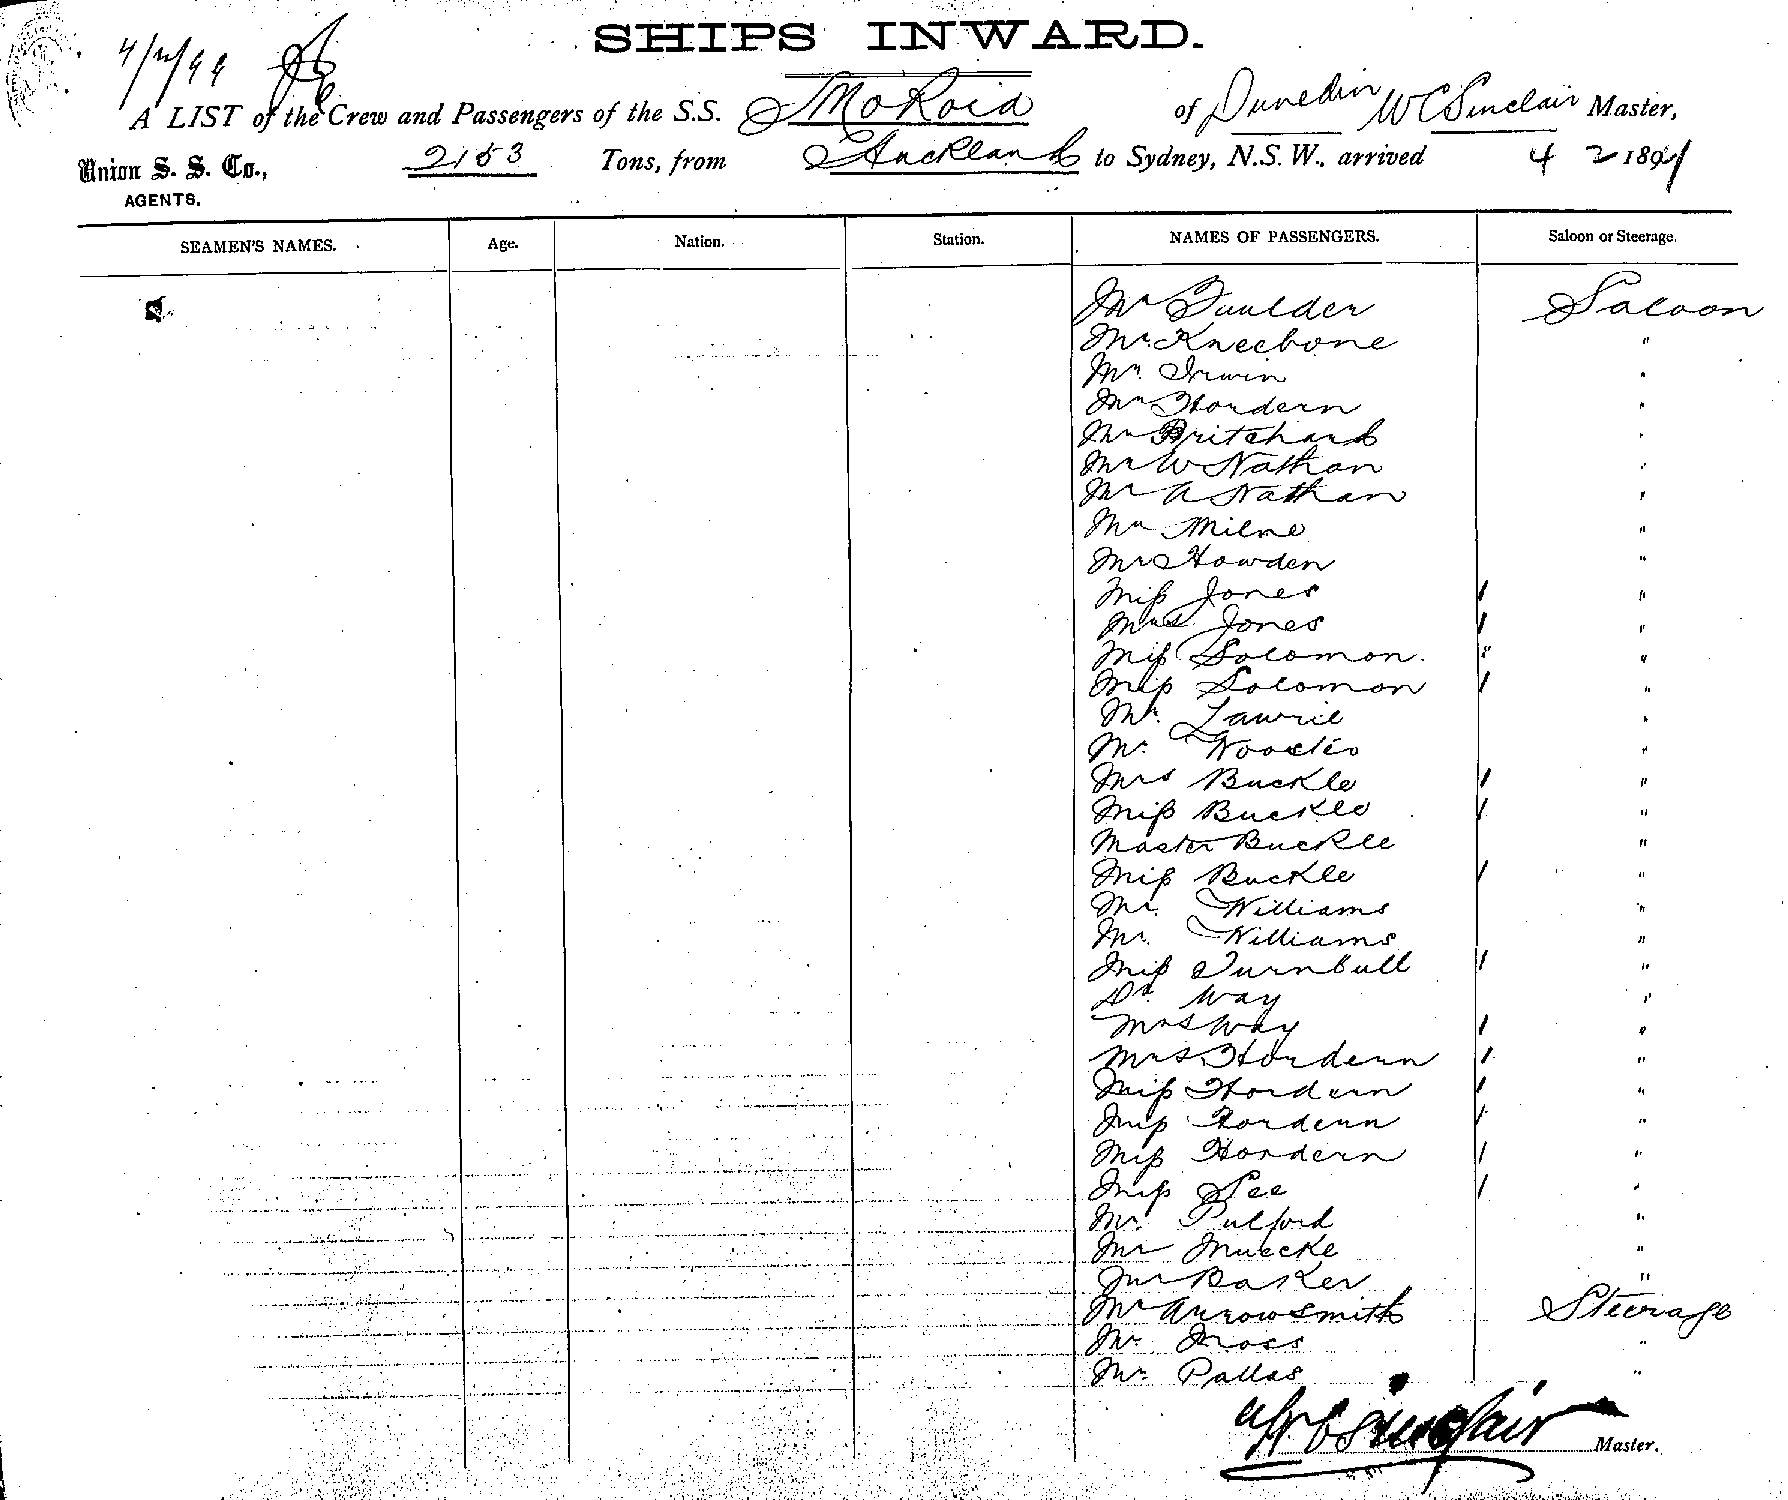 SHIPS INWARD.
4/2/99
A LIST of the Crew and Passengers of the S.S. Mokoia of Dunedin W C Sinclair Master,
Union S. S. Co., 2153 Tons, from Auckland to Sydney, N.S.W., arrived 4 2 189
AGENTS.
SEAMEN'S NAMES. Age. Nation. Station. NAMES OF PASSENGERS. Saloon or Steerage.
Mr Saloon
Mr. Kneebone "
Mr. Irwin "
Mr Hordern "
Mr Pritchard "
Mr W Nathan "
Mr A Nathan "
Mr Milne "
Mr Howden "
Miss Jones / "
Mrs Jones / "
Miss Solomon. " "
Miss Solomon / "
Mr. Lawrie "
Mr. "
Mrs Buckle / "
Miss Buckle / "
Master Buckle "
Miss Buckle / "
Mr. Williams "
Mr. Williams "
Miss Turnbull / "
Dr. Way "
Mrs Way / "
Mrs Hordern / "
Miss Hordern / "
Miss Hordern / "
Miss Hordern / "
Miss See / "
Mr. Pulford "
Mr Muecke "
Mr Baker "
Mr Arrowsmith Steerage
Mr. Moss "
Mr. Pallas "
W C Sinclair
Master.